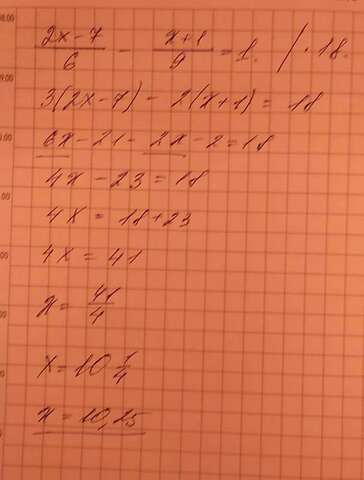 (2x-7)/6 - (x+1)/9 = 1. /·18.
3(2x-7) - 2(x+1) = 18
6x-21-2x-2=18
4x-23=18
4x = 18+23
4x = 41
x = 41/4
x = 10 1/4
x = 10,25